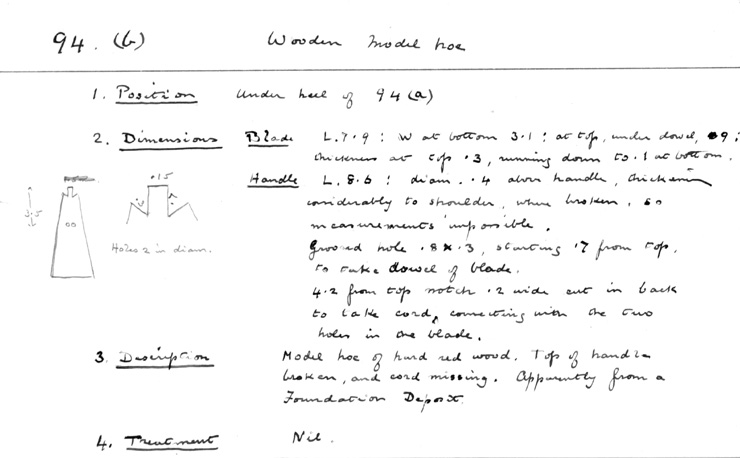 94. (b) Wooden model hoe
1. Position Under heel of 94(a)
2. Dimensions Blade L. 7.9 : W at bottom 3.1 : at top, under dowel, .9 ;
thickness at top .3, running down to .1 at bottom.
Handle L. 8.6 : diam. .4 above handle, thickening
considerably to shoulder, where broken, so
measurements impossible.
Grooved hole .8 x .3, starting .7 from top,
to take dowel of blade.
4.2 from top notch .2 wide cut in back
to take cord, connecting with the two
holes in the blade.
3.5
.15
Holes 2 in diam.
3. Description Model hoe of hard red wood. Top of handle
broken, and cord missing. Apparently from a
Foundation Deposit.
4. Treatment Nil.